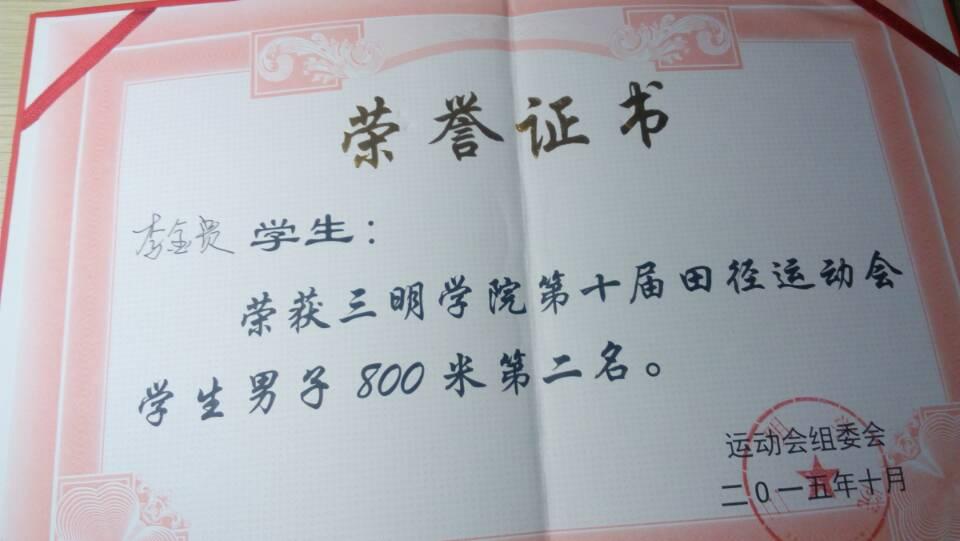 荣誉证书
李金贵 学生：
荣获三明学院第十届田径运动会
学生男子800米第二名。
运动会组委会
二〇一五年十月